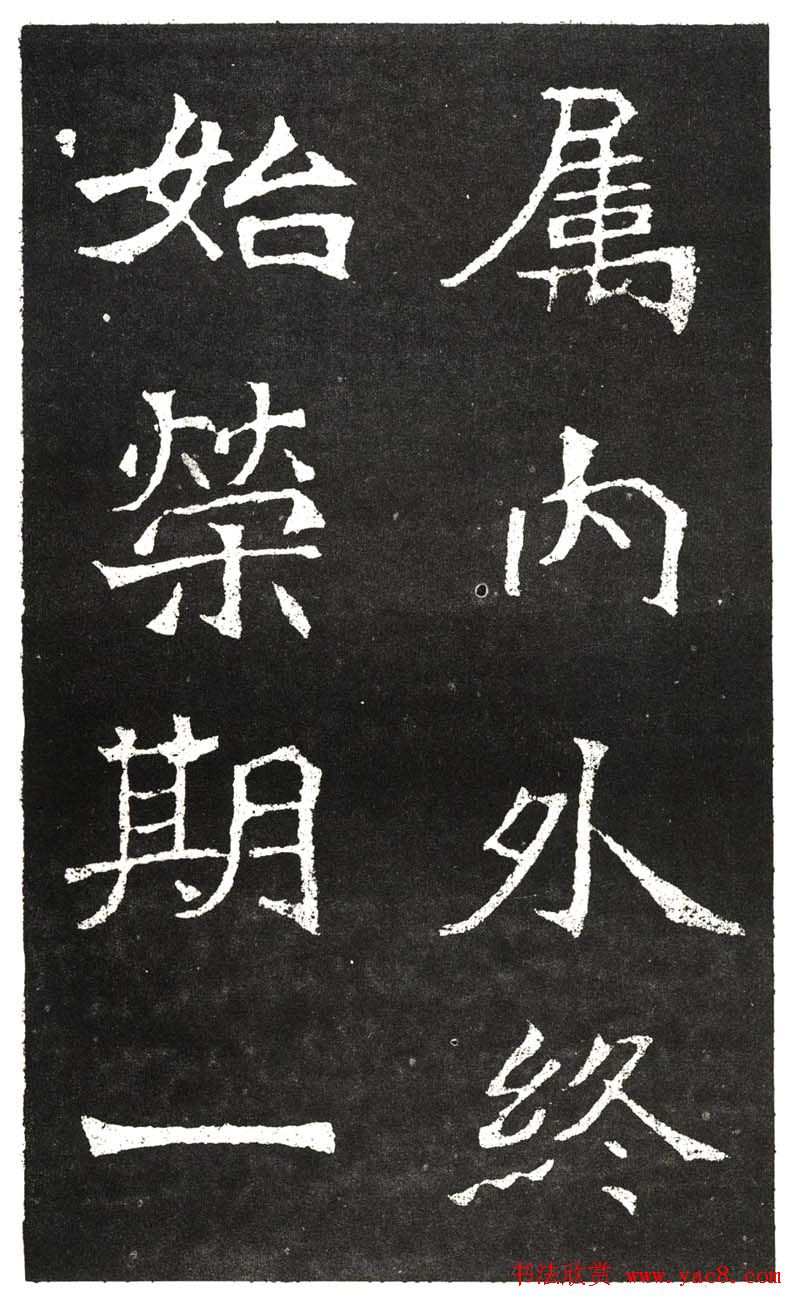 属内外終
始榮期一
书法欣赏 www.yac8.com